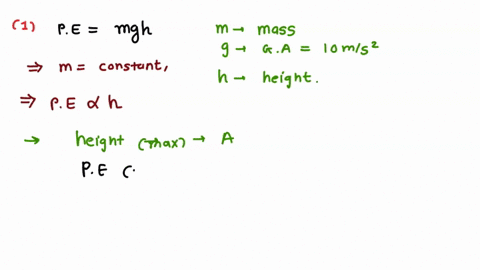 (1) P.E = mgh
m → mass
g → G.A = 10 m/s²
⇒ m = constant,
h → height.
⇒ P.E ∝ h
→ height (max) → A
P.E (